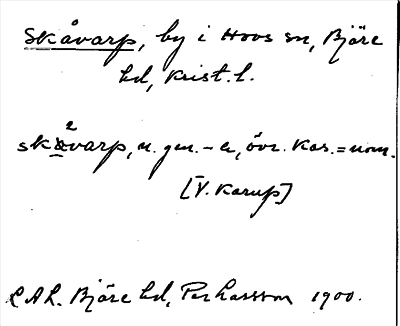 Skåvarp, by i Hovs sn, Bjäre
hd, Krist. l.
skåvarp, n. gen. – a, övr. kas. = nom.
[V. Karup]
LAL. Bjäre hd, Per Larsson 1900.